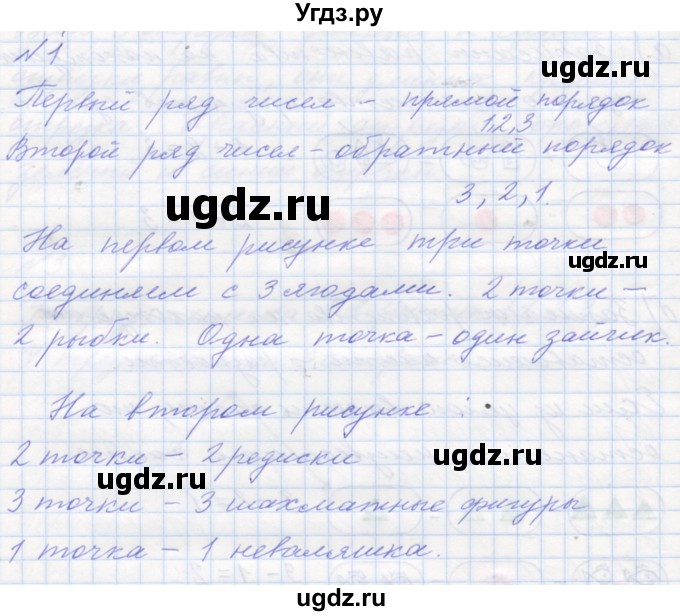 Угэды.ру
ugdz.ru
N 1
Первый ряд чисел – прямой порядок
1, 2, 3
Второй ряд чисел – обратный порядок
3, 2, 1.
ugdz.ru
ugdz.ru
На первом рисунке три точки
соединяем с 3 ягодами. 2 точки –
2 рыбки. Одна точка – один зайчик.
ugdz.ru
ugdz.ru
На втором рисунке :
2 точки – 2 редиски
ugdz.ru
ugdz.ru
3 точки – 3 шахматные фигуры
1 точка – 1 неваляшка.
ugdz.ru